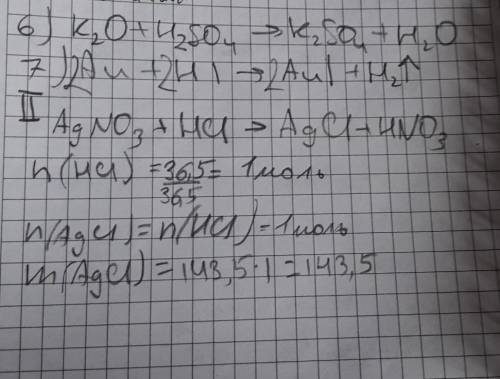 6) K₂O + H₂SO₄ → K₂SO₄ + H₂O
7) 2Au + 2HI → 2AuI + H₂↑
II
AgNO₃ + HCl → AgCl + HNO₃
n(HCl) = 36,5/36,5 = 1 моль
n(AgCl) = n(HCl) = 1 моль
m(AgCl) = 143,5·1 = 143,5